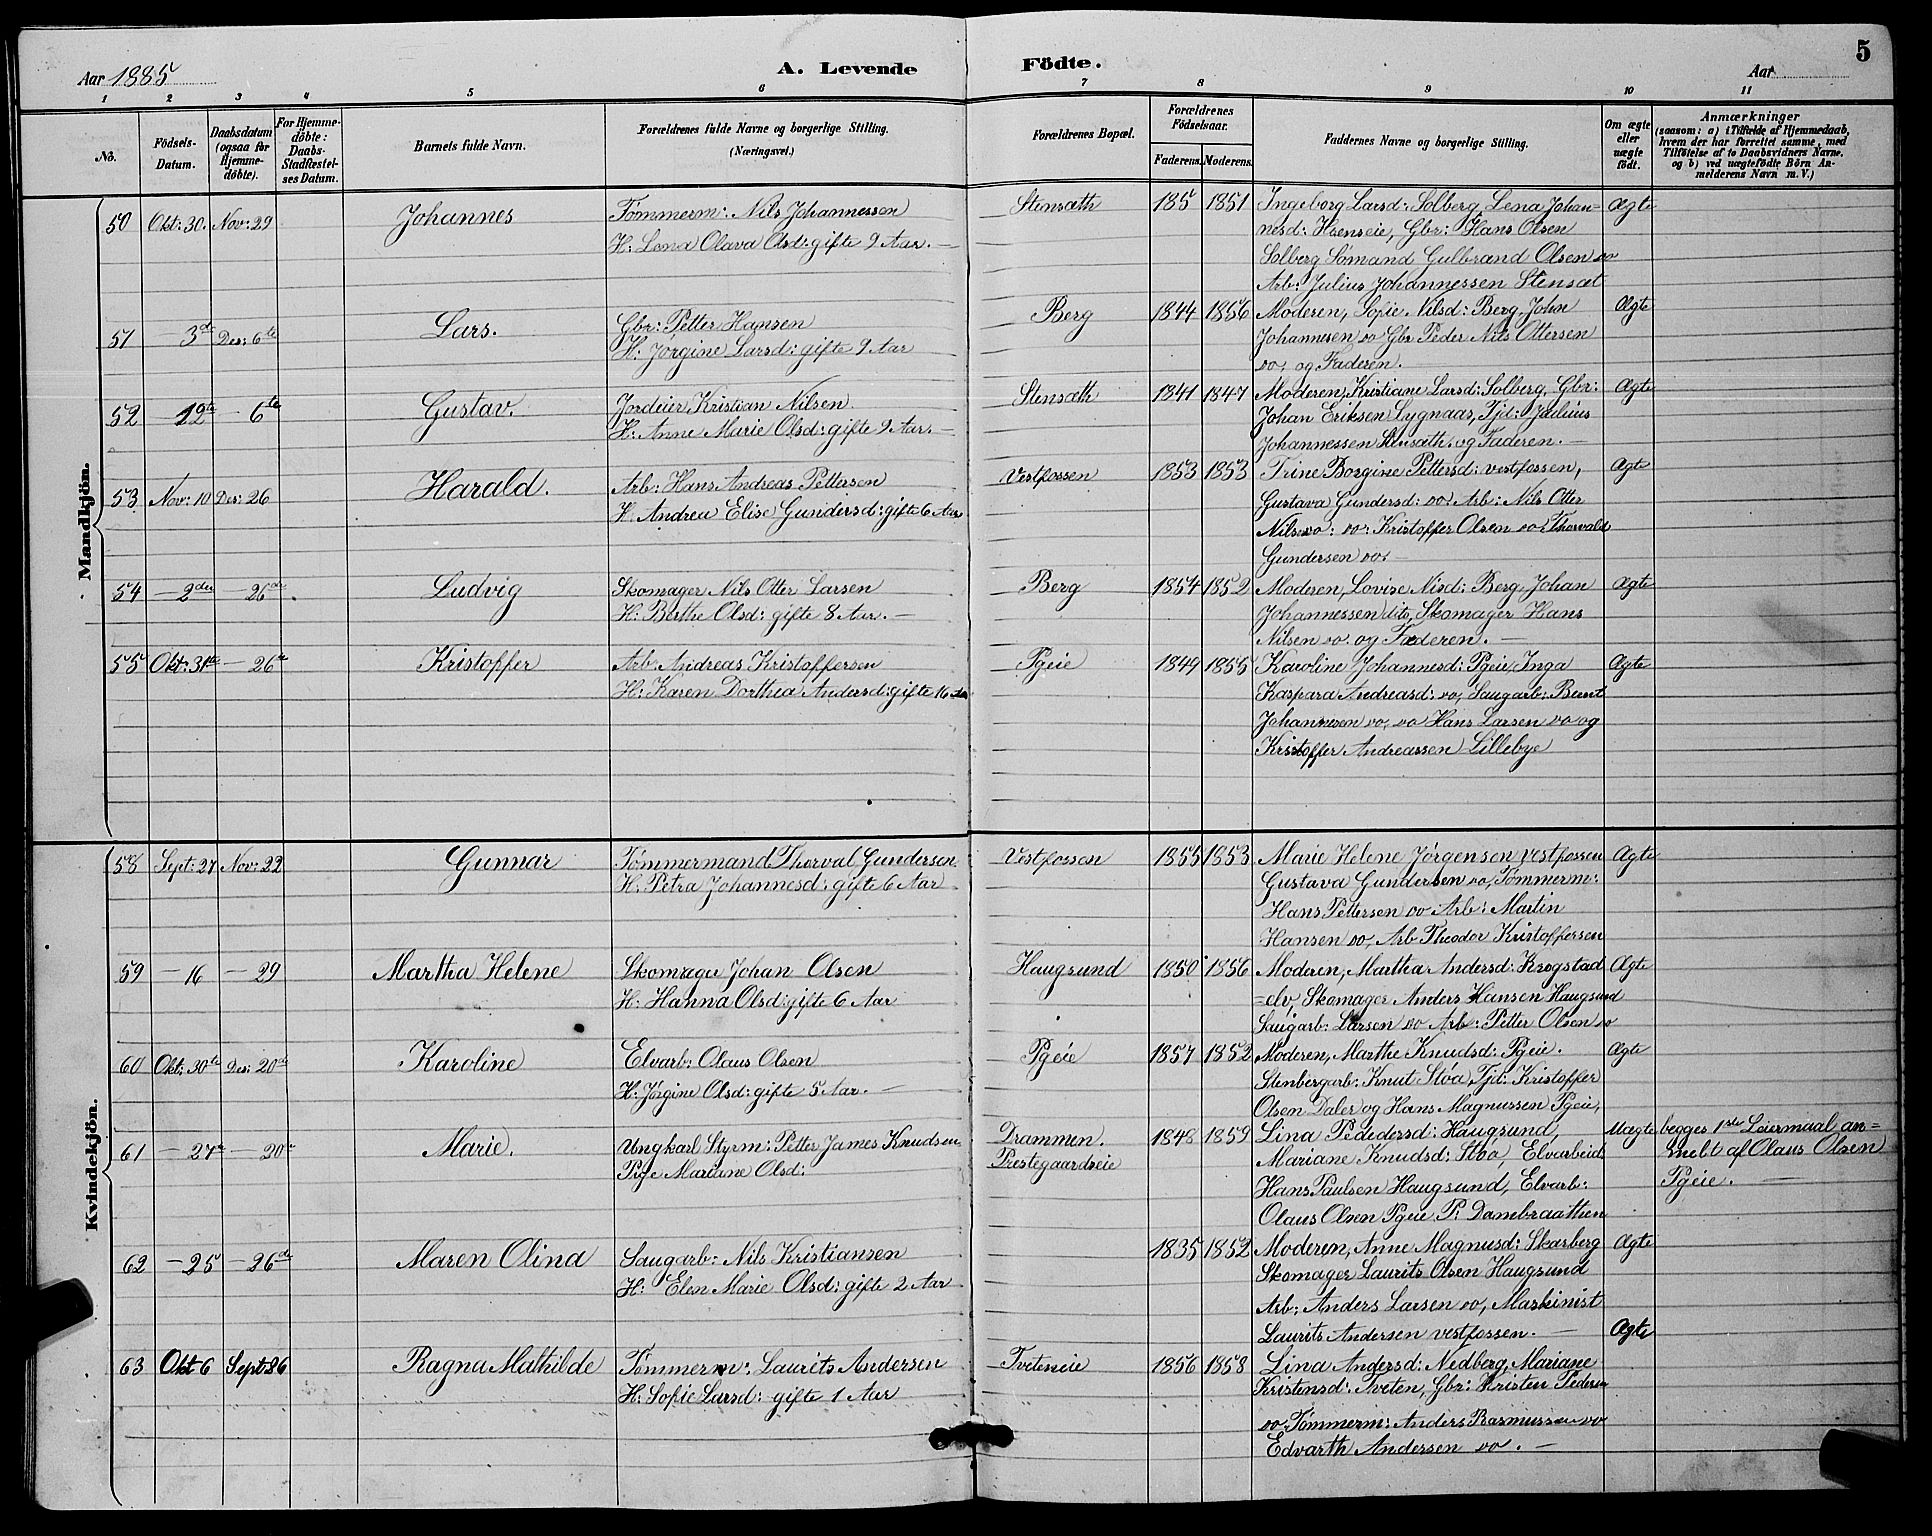 5
Aar 1885
A. Levende Födte.
Aar
1 2 3 4 5 6 7 8 9 10 11
No.
Födsels-Datum.
Daabsdatum (ogsaa for Hjemme-döbte).
For Hjemme-döbte: Daabs-Stadfæstel-ses Datum.
Barnets fulde Navn.
Forældrenes fulde Navne og borgerlige Stilling.
(Næringsvei.)
Forældrenes Bopæl.
Forældrenes Födselsaar.
Faderens. Moderens.
Faddernes Navne og borgerlige Stilling.
Om ægte eller uægte födt.
Anmærkninger
(saasom: a) i Tilfælde af Hjemmedaab,
hvem der har forrettet samme, med
Tilföielse af to Daabsvidners Navne,
og b) ved uægtefödte Börn An-
melderens Navn m. V.)
Mandkjön.
50 Okt: 30. Nov: 29 Johannes Tømmerm: Nils Johannessen Stensæth 185 1851 Ingeborg Larsd: Solberg Lena Johan= Ægte
H: Lena Olava Olsd: gifte 9 Aar. — nesd: Hænseie, Gbr: Hans Olsen
Solberg Sømand Gulbrand Olsen do
Arb: Julius Johannessen Stensæt
51 — 3de Des: 6te Lars. Gbr: Petter Hansen Berg 1844 1856 Moderen, Sofie Nilsd: Berg, John Ægte
H: Jørgine Larsd: gifte 9 Aar Johannesen do Gbr Peder Nils Ottersen
do, og Faderen.
52 — 12te — 6te Gustav. Jordeier Kristian Nilsen Stensæth 1841 1847 Moderen, Kristiane Larsd: Solberg, Gbr: Ægte
H: Anne Marie Olsd: gifte 9 Aar. — Johan Eriksen Lygnaas, Tjd: Julius
Johannessen Stensæth og Faderen. —
53 Nov: 10 Des: 26 Harald. Arb: Hans Andreas Pettersen Vestfossen 1853 1853 Trine Borgine Pettersd: vestfossen, Ægte
H: Andrea Elise Gundersd: gifte 6 Aar Gustava Gundersd: do Arb: Nils Otter
Nilsen do: do: Kristoffer Olsen do: Thorvald
Gundersen do. —
54 — 2den — 26de. Ludvig Skomager Nils Otter Larsen Berg 1854 1852 Moderen, Lovise Nisd: Berg, Johan Ægte
H: Berthe Olsd: gifte 8 Aar. — Johannessen dito, Skomager Hans
Nilsen do. og Faderen. —
55 Okt: 31te — 26de Kristoffer Arb: Andreas Kristoffersen Pgeie 1849 1855 Karoline Johannesd: Pgeie, Inga Ægte
H: Karen Dorthea Andersd: gifte 16 Aar Kaspara Andreasd: do, Saugarb: Bernt
Johannesen do, do Hans Larsen do og
Kristoffer Andreassen Lillebye
Kvindekjön.
58 Sept: 27 Nov: 22 Gunnar Tømmermand Thorval Gundersen Vestfossen 1855 1853 Marie Helene Jørgensen vestfossen Ægte
H: Petra Johannesd: gifte 6 Aar Gustava Gundersen do, Tømmerm:
Hans Pettersen do Arb: Martin
Hansen do, Arb Theodor Kristoffersen
59 — 16 — 29 Martha Helene Skomager Johan Olsen Haugsund 1850 1856 Moderen, Martha Andersd: Krogstad Ægte
H: Hanna Olsd: gifte 6 Aar =elv, Skomager Anders Hansen Haugsund
Saugarb: Larsen do Arb: Petter Olsen do
60 Okt: 30te Des: 20de Karoline Elvarb: Olaus Olsen Pgeie 1857 1852 Moderen, Marthe Knudsd: Pgeie. Ægte
H: Jørgine Olsd: gifte 5 Aar. — Stenbergarb: Knut Støa, Tjd: Kristoffer
Olsen Daler og Hans Magnussen Pgeie,
61 — 27de — 20de Marie. Ungkarl Styrm: Petter James Knudsen Drammen. 1848 1859 Lina Pededersd: Haugsund, Uægte begges 1ste Leiermaal an=
Pige Mariane Olsd: Prestegaardseie Mariane Knudsd: Støa, Elvarbeid meldt af Olaus Olsen
Hans Paulsen Haugsund, Elvarb: Pgeie. —
Olaus Olsen Pgeie P: Dambraathen
62 — 25 — 26de Maren Olina Saugarb: Nils Kristiansen 1835 1852 Moderen, Anne Magnusd: Skarberg Ægte
H: Elen Marie Olsd: gifte 2 Aar Skomager Laurits Olsen Haugsund
Arb: Anders Larsen do, Maskinist
Laurits Andersen vestfossen. — Ægte
63 Okt 6 Sept 86 Ragna Mathilde Tømmerm: Laurits Andersen Tveteneie 1856 1858 Lina Andersd: Nedberg, Mariane
H: Sofie Larsd: gifte 1 Aar Kristensd: Tveten, Gbr: Kristen Pedersen
do. Tømmerm: Anders Rasmussen do
Edvarth Andersen do. —